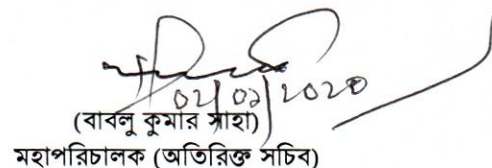 02/02/2020
(বাবলু কুমার সাহা)
মহাপরিচালক (অতিরিক্ত সচিব)